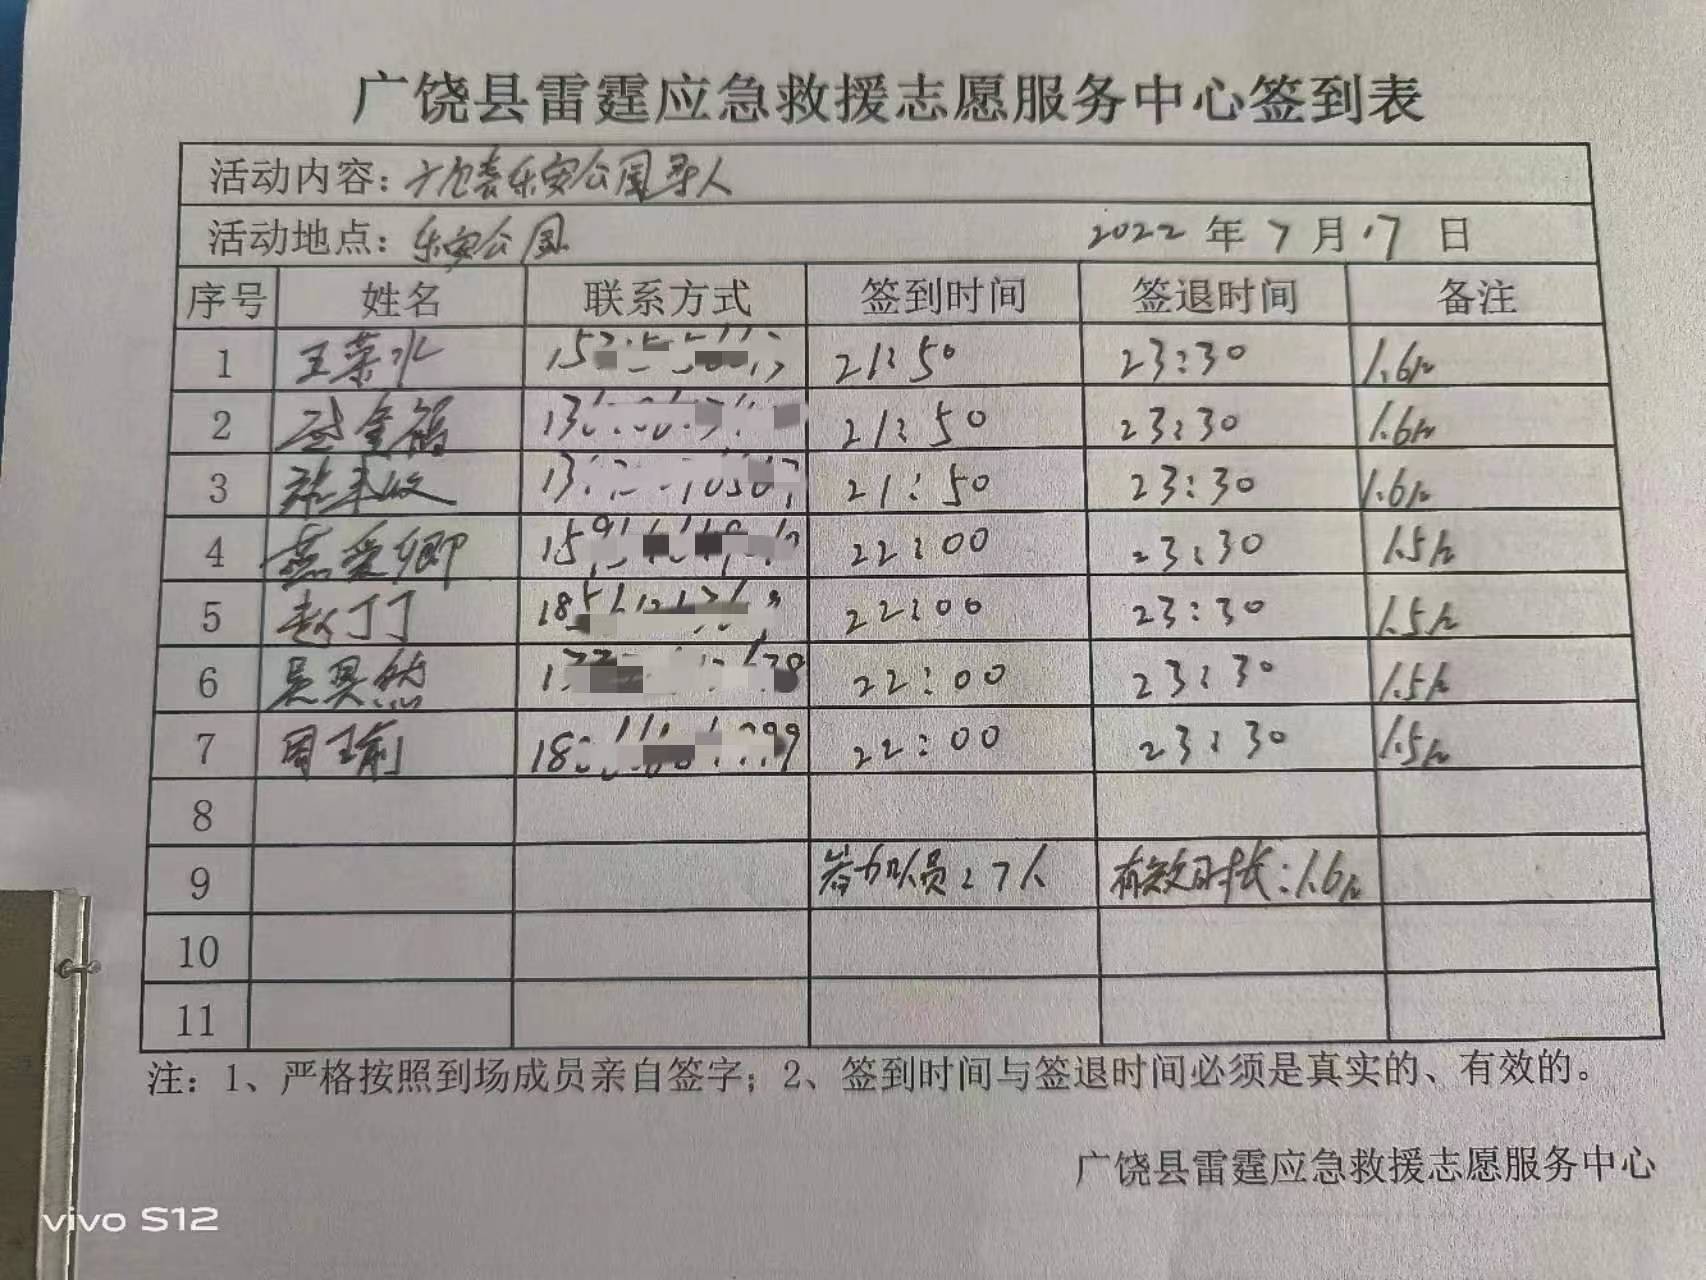 广饶县雷霆应急救援志愿服务中心签到表
活动内容：广饶县乐安公园寻人
活动地点：乐安公园 2022年7月17日
序号 姓名 联系方式 签到时间 签退时间 备注
1 王荣水 21:50 23:30 1.6h
2 金福 21:50 23:30 1.6h
3 丰收 21:50 23:30 1.6h
4 燕爱卿 22:00 23:30 1.5h
5 赵丁丁 22:00 23:30 1.5h
6 吴昊然 22:00 23:30 1.5h
7 周瑜 22:00 23:30 1.5h
8
9 参加队员：7人 有效时长：1.6h
10
11
注：1、严格按照到场成员亲自签字；2、签到时间与签退时间必须是真实的、有效的。
广饶县雷霆应急救援志愿服务中心
vivo S12